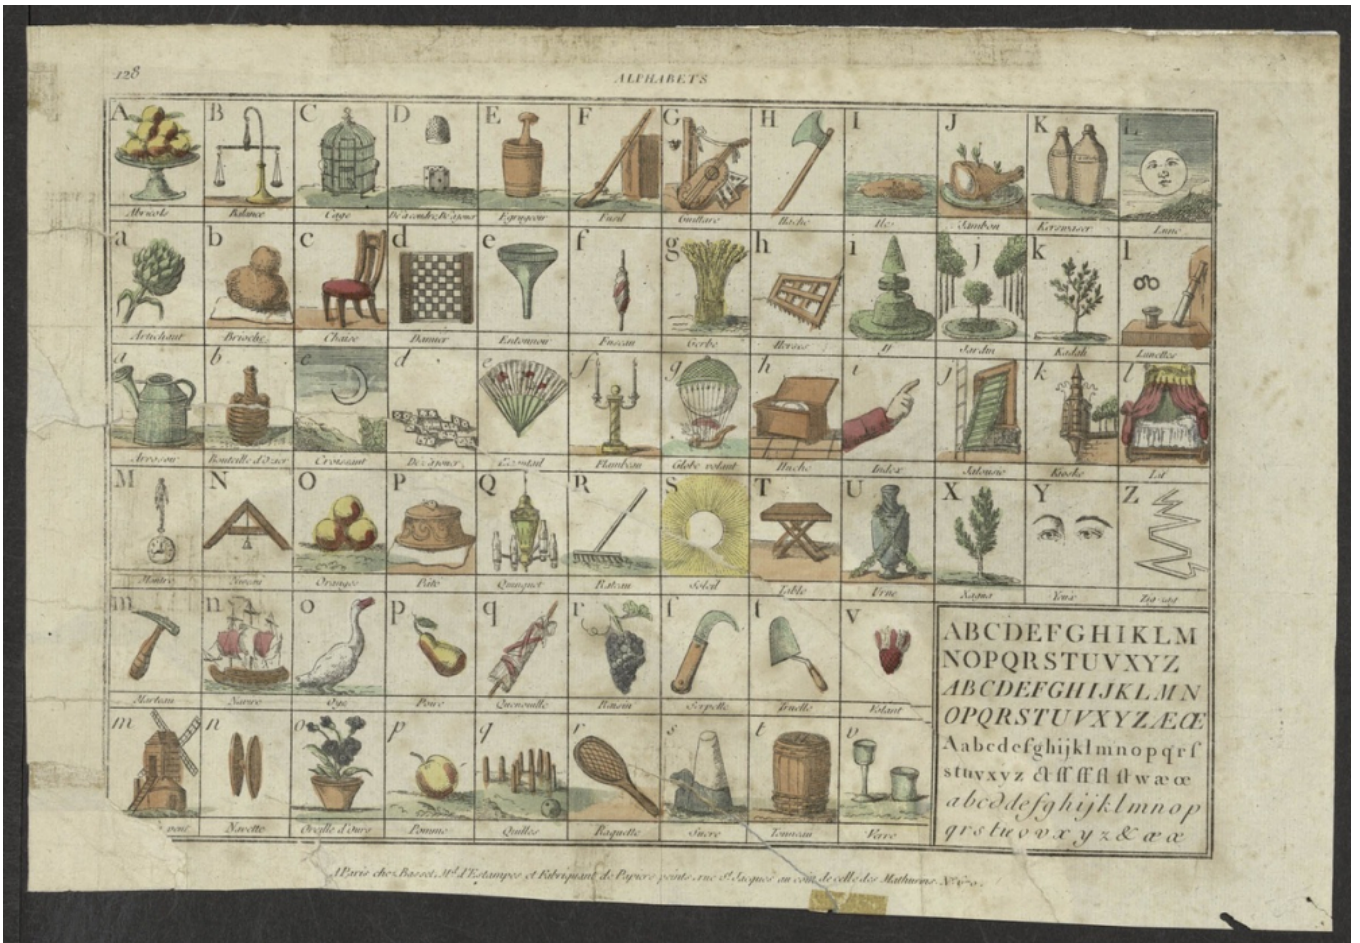 128
ALPHABETS
A B C D E F G H I J K L
Abricots Balance Cage Dé à coudre, Dé à jouer Egrugeoir Fusil Guittare Hache Iles Jambon Lune
a b c d e f g h i j k l
Artichaut Brioche Chaise Damier Entonnoir Fuseau Gerbe Herses If Jardin Kadali Lunettes
a b c d e f g h i j k l
Arrosoir Bouteille d'Ozier Croissant Dés à jouer Eventail Flambeau Globe volant Huche Index Jalousie Kioske Lit
M N O P Q R S T U X Y Z
Montre Niveau Oranges Pâté Quinquet Rateau Soleil Table Urne Xagua Yeux Zig-zag
m n o p q r ſ t v
Marteau Navire Oye Poire Quenouille Raisin Serpette Truelle Volant
m n o p q r s t v
vent Navette Oreille d'Ours Pomme Quilles Raquette Sucre Tonneau Verre
ABCDEFGHIKLM
NOPQRSTUVXYZ
ABCDEFGHIJKLMN
OPQRSTUVXYZÆŒ
Aabcdefghijklmnopqrſ
stuvxyz & ſſ ff ſl ſt w æ œ
abcddefghijklmnop
qrstuvvxyz& æ œ
A Paris chez Basset, Md. d'Estampes et Fabriquant de Papiers peints, rue St. Jacques au coin de celle des Mathurins N°.